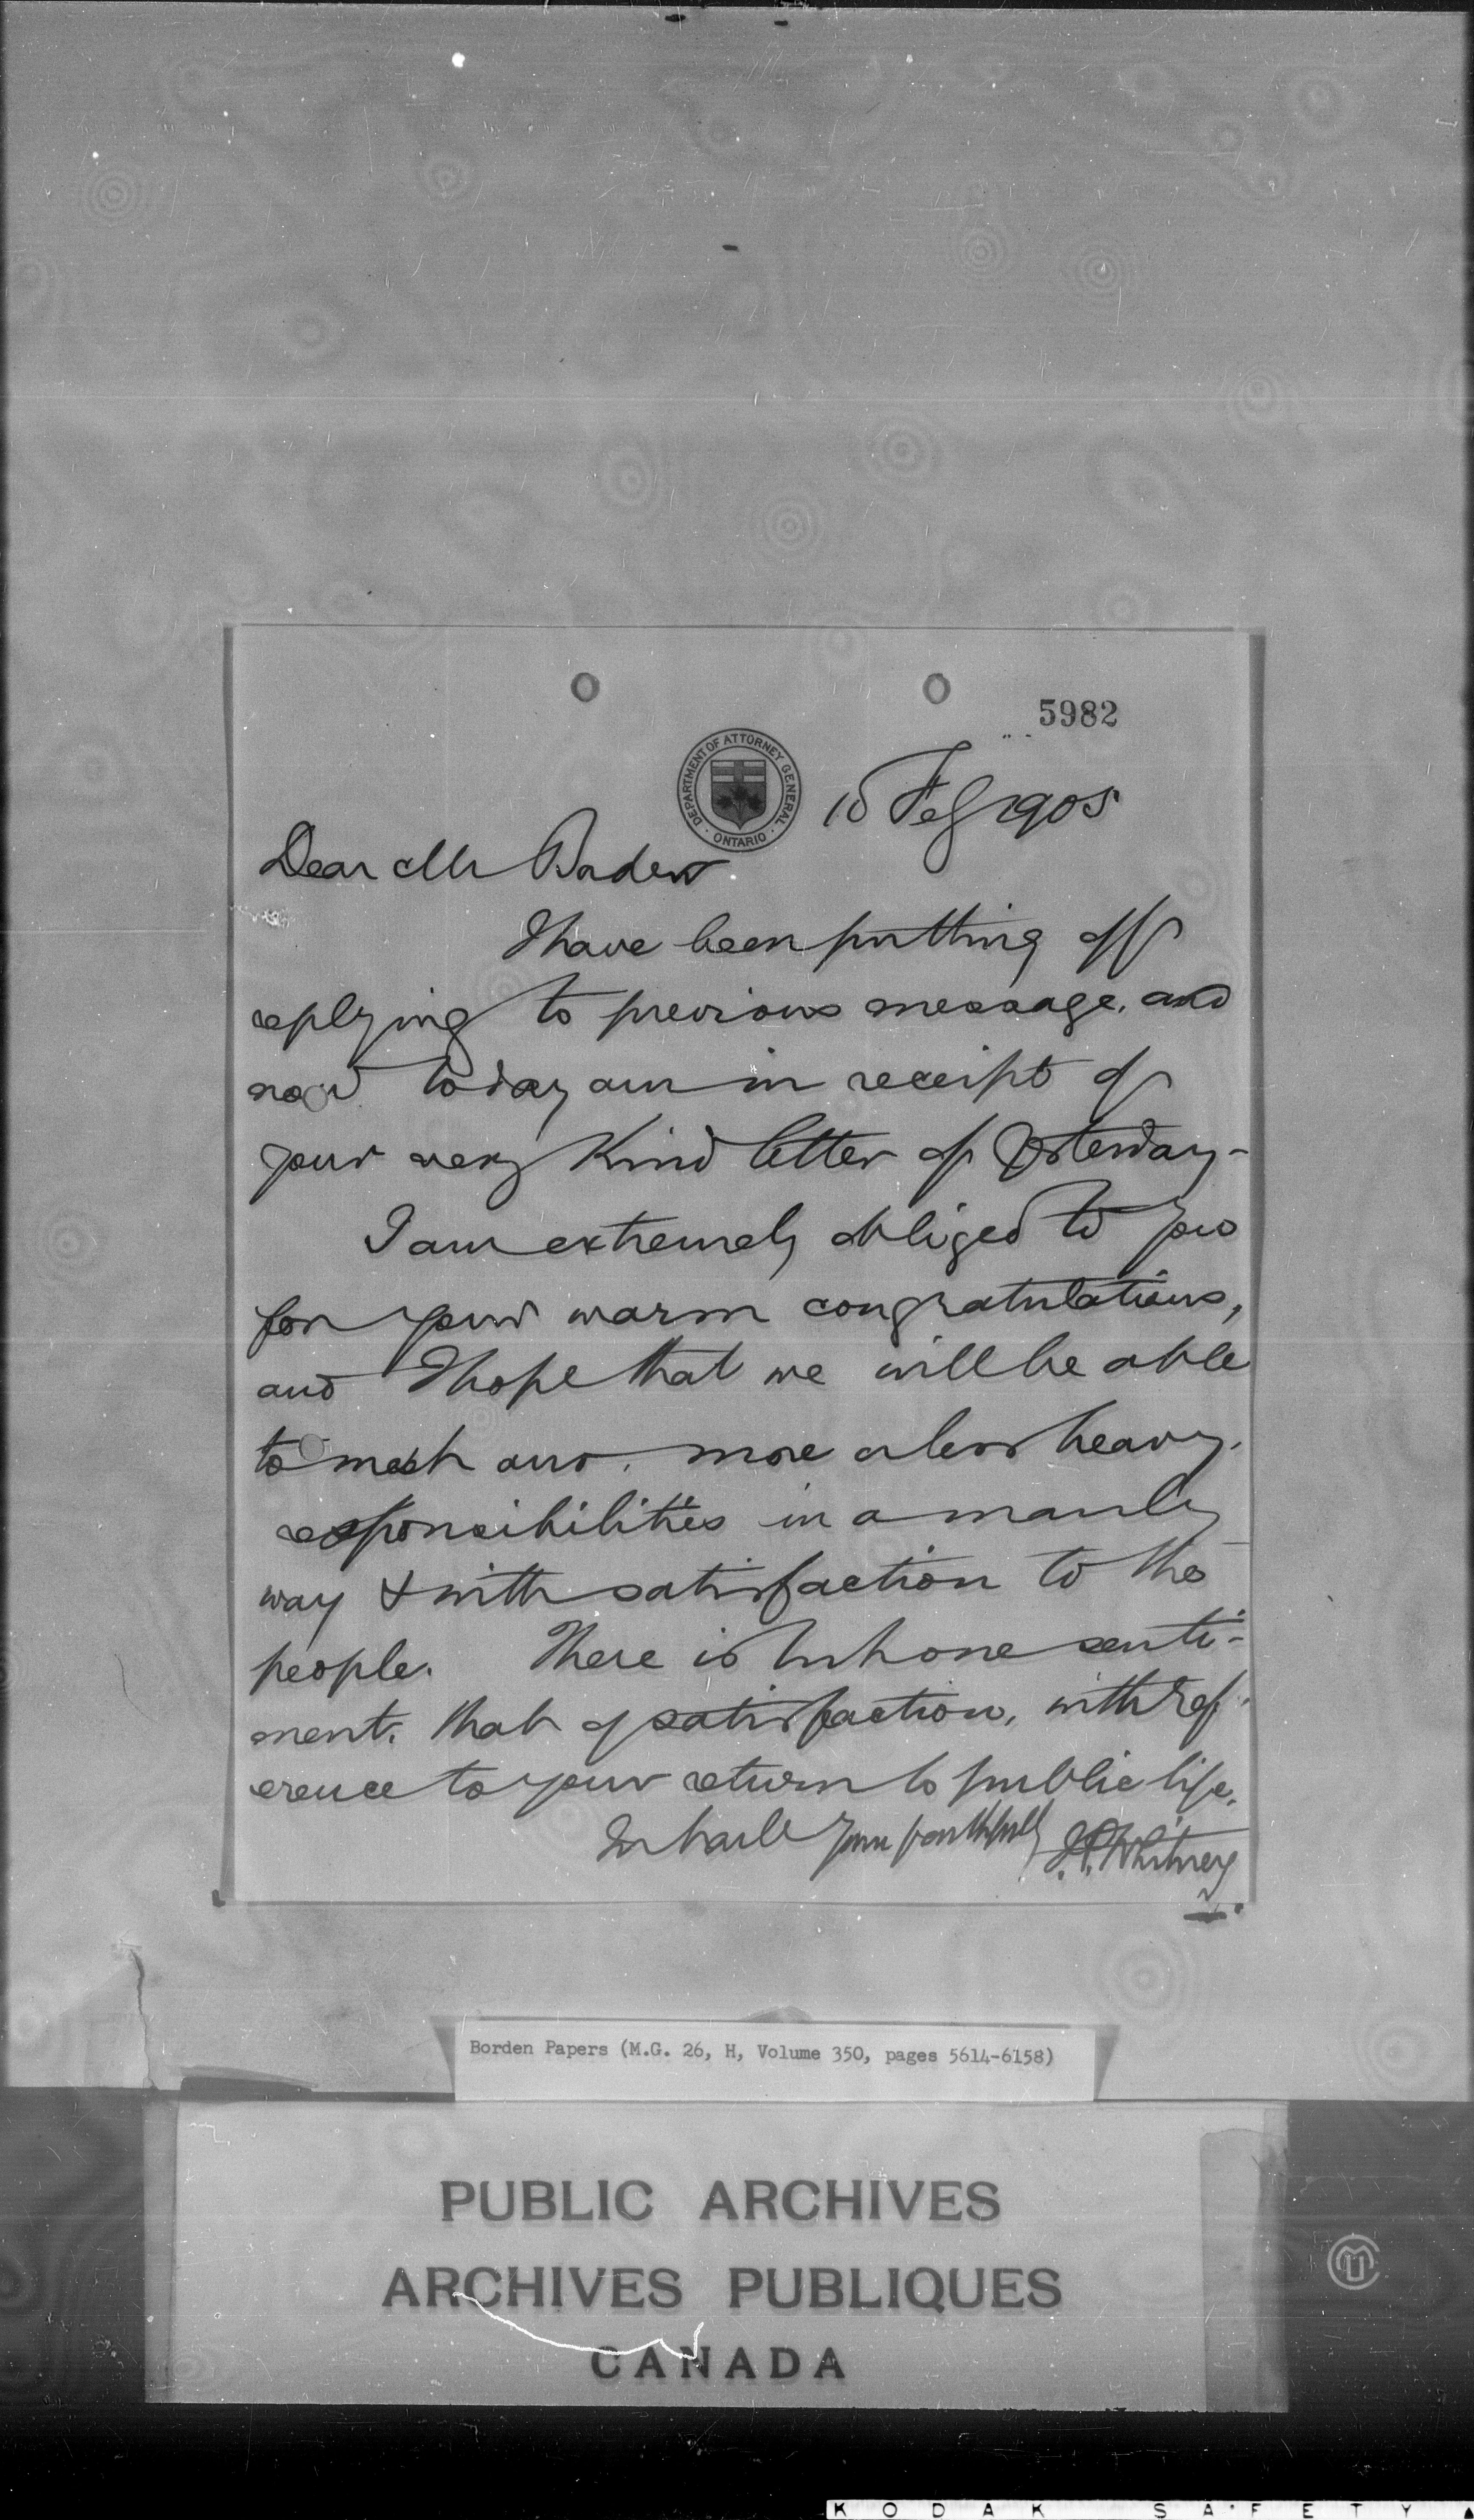 5982
DEPARTMENT OF ATTORNEY GENERAL
ONTARIO
10 Feb 1905
Dear Mr Borden
I have been putting off
replying to previous message, and
now today am in receipt of
your very kind letter of yesterday-
I am extremely obliged to you
for your warm congratulations,
and I hope that we will be able
to meet our more or less heavy
responsibilities in a manly
way & with satisfaction to the
people. There is but one senti-
ment, that of satisfaction, with ref-
erence to your return to public life.
In haste Yours faithfully J.P. Whitney
Borden Papers (M.G. 26, H, Volume 350, pages 5614-6158)
PUBLIC ARCHIVES
ARCHIVES PUBLIQUES
CANADA
KODAK SAFETY